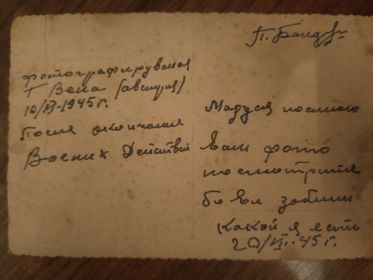 фотографирувался
г Вена (австрия)
10/VI-1945 г.
После окончания
Воених Действий
Маруся посилаю
вам фото
посмотрите
бо ви забили
какой я есть
20/VI-45 г.